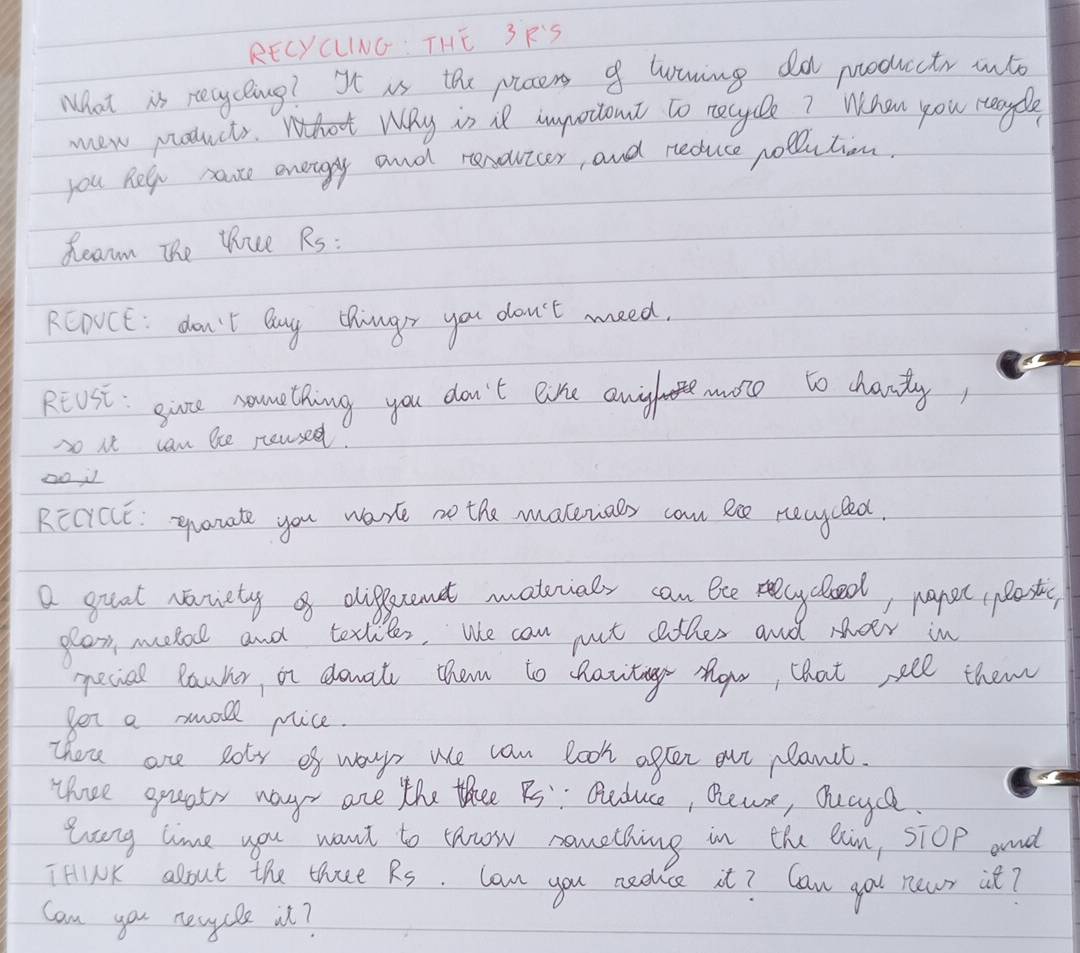 RECYCLING: THE 3 R'S
What is recycling? It is the process of turning old products into
new products. What Why is it important to recycle? When you recycle,
you help save energy and resources, and reduce pollution.
Learn the three Rs:
REDUCE: don't buy things you don't need.
REUSE: give something you don't like any more to charity,
so it can be reused.
so it
RECYCLE: separate you waste so the materials can be recycled.
A great variety of different materials can be recycled, paper, plastic,
glass, metal and textiles. We can put clothes and shoes in
special banks, or donate them to charity shops, that sell them
for a small price.
There are lots of ways we can look after our planet.
Three greats ways are "the three Rs": Reduce, Reuse, Recycle.
Every time you want to throw something in the bin, STOP and
THINK about the three Rs. Can you reduce it? Can you reuse it?
Can you recycle it?